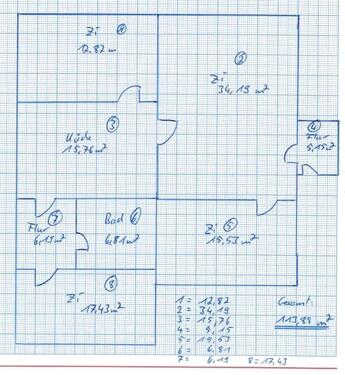 Zi ①
12,82 m
②
Zi
34,19 m²
③
Küche
15,76 m²
④
Flur
5,15 m²
⑦
Flur
6,19 m²
Bad ⑥
6,81 m²
Zi ⑤
15,53 m²
⑧
Zi
17,43 m²
1 = 12,82
2 = 34,19
3 = 15,76
4 = 5,15
5 = 15,53
6 = 6,81
7 = 6,19 8 = 17,43
Gesamt:
113,88 m²